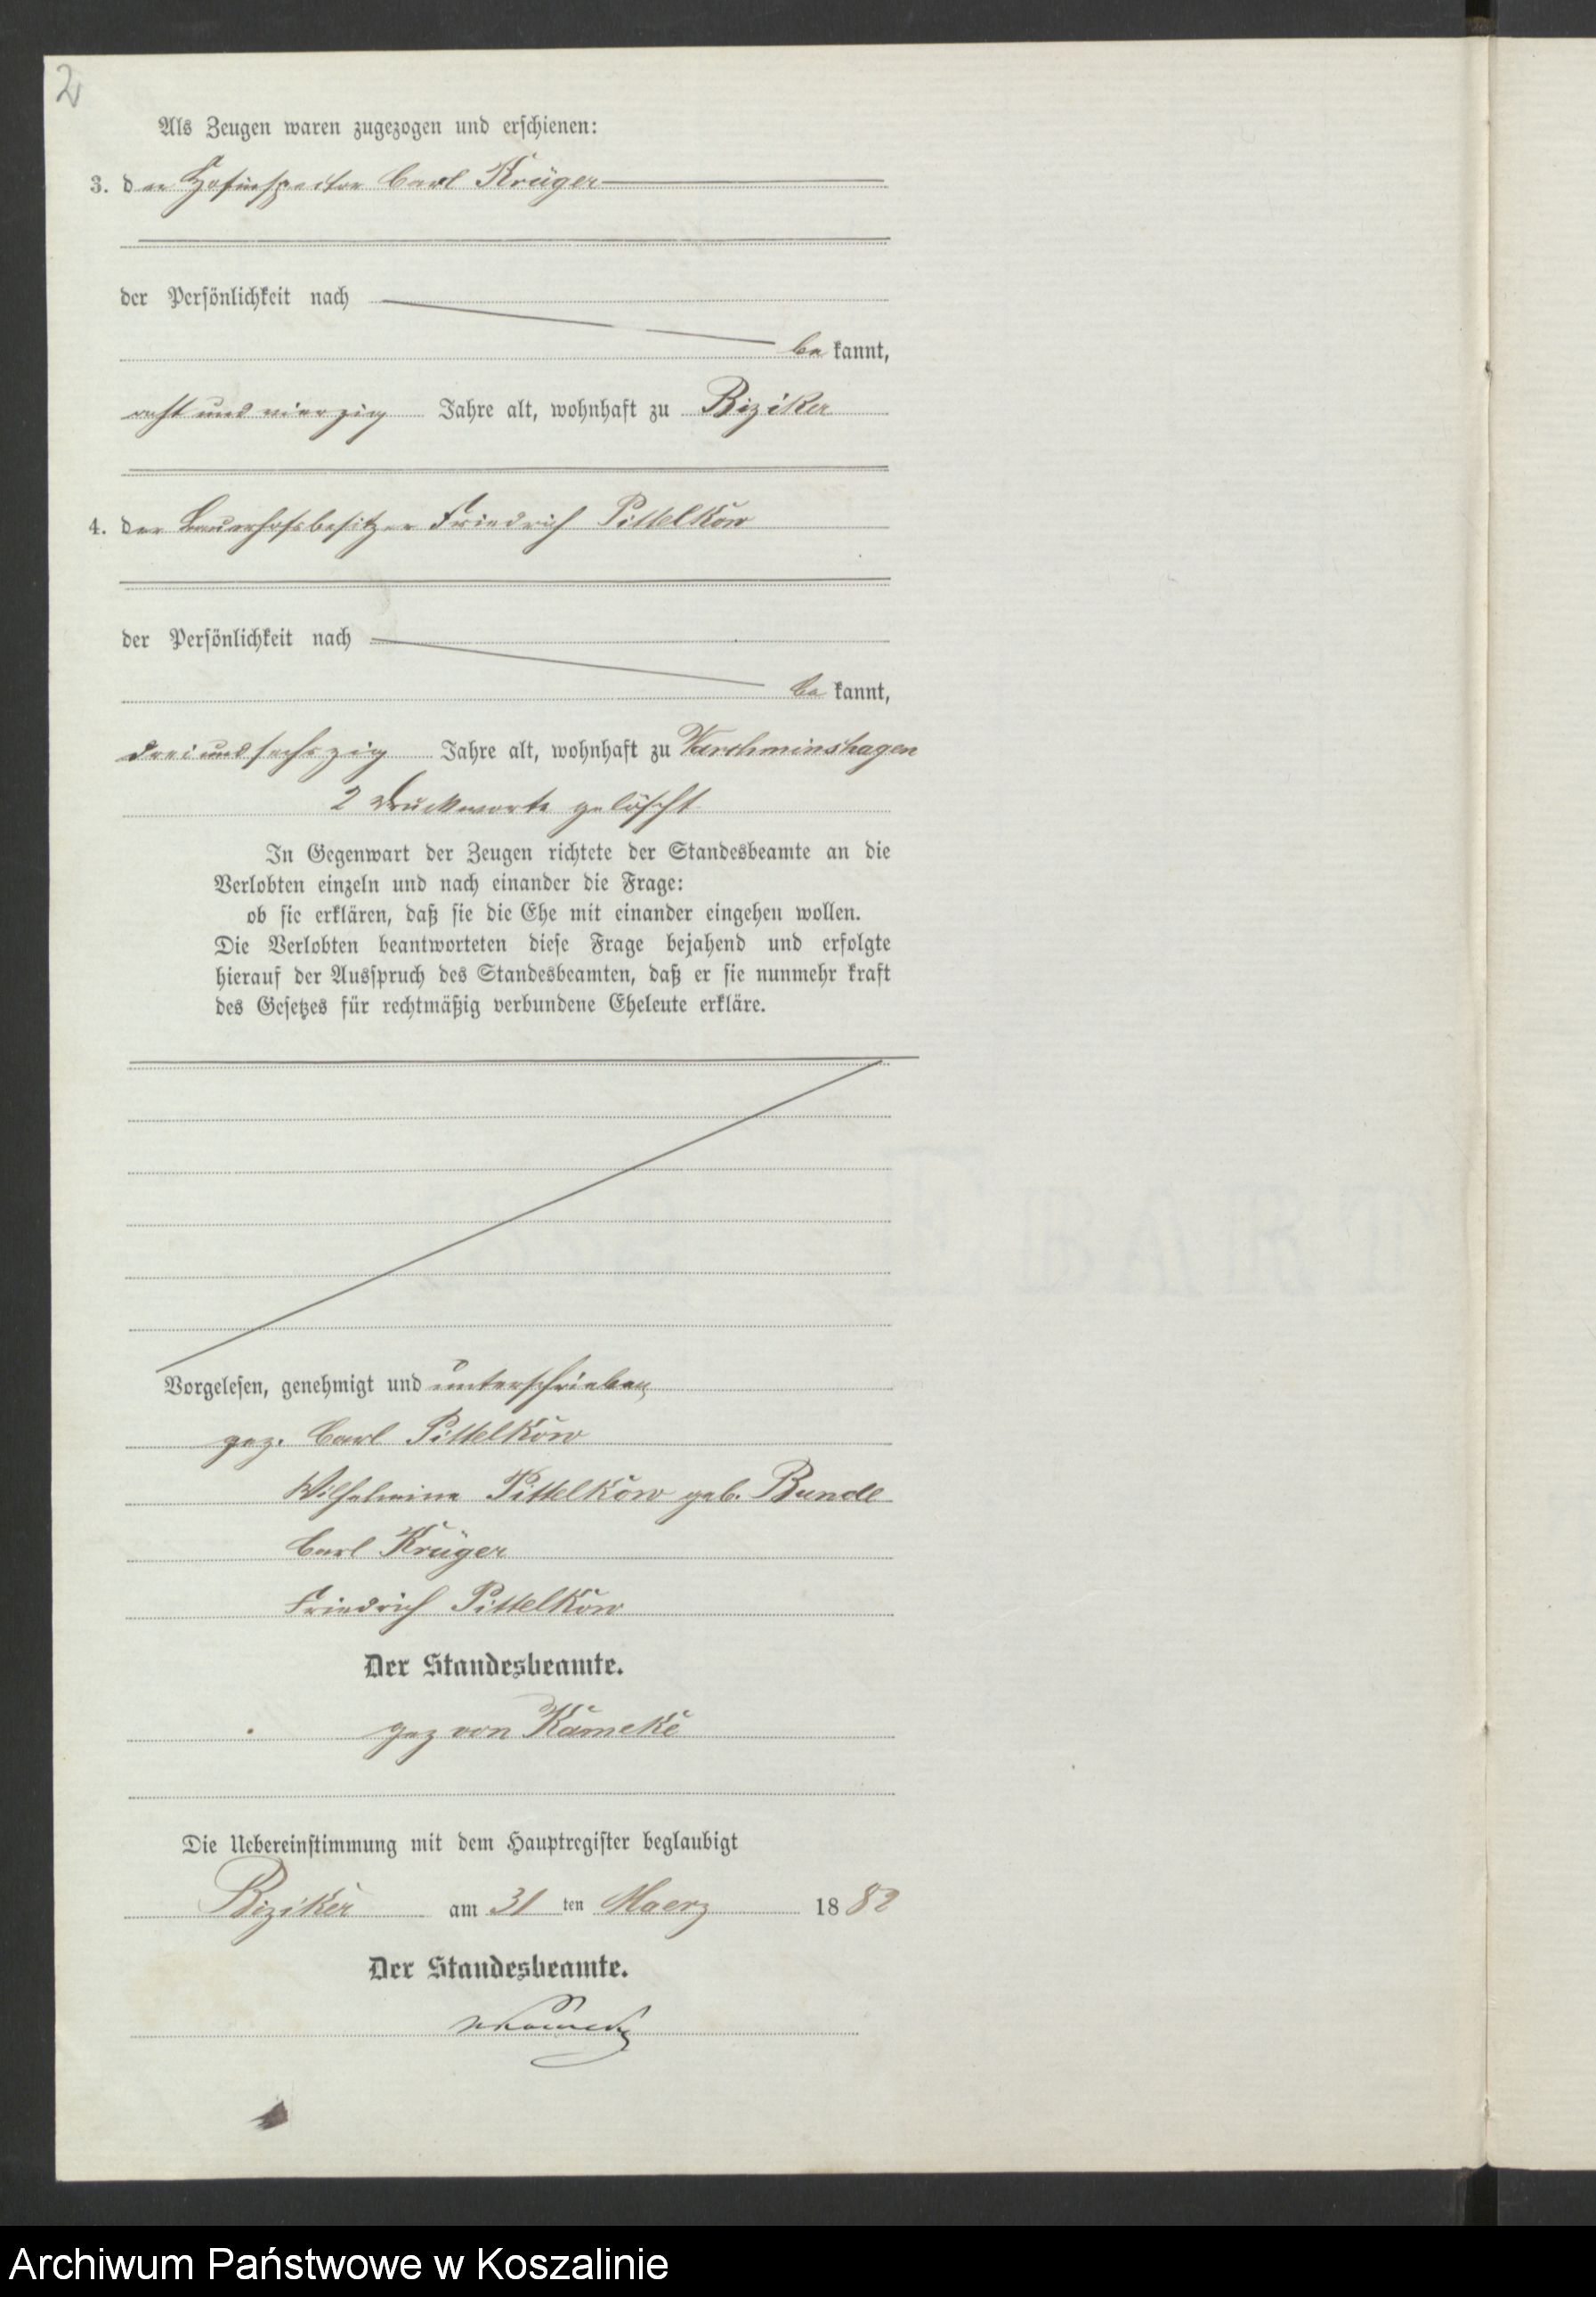 2
Als Zeugen waren zugezogen und erschienen:
3. der Hofinspector Carl Krüger
der Persönlichkeit nach
be kannt,
acht und vierzig Jahre alt, wohnhaft zu Biziker
4. der Bauerhofsbesitzer Friedrich Pittelkow
der Persönlichkeit nach
be kannt,
drei und sechszig Jahre alt, wohnhaft zu Varchminshagen
2 Druckworte gelöscht
In Gegenwart der Zeugen richtete der Standesbeamte an die
Verlobten einzeln und nach einander die Frage:
ob sie erklären, daß sie die Ehe mit einander eingehen wollen.
Die Verlobten beantworteten diese Frage bejahend und erfolgte
hierauf der Ausspruch des Standesbeamten, daß er sie nunmehr kraft
des Gesetzes für rechtmäßig verbundene Eheleute erkläre.
Vorgelesen, genehmigt und unterschrieben
gez. Carl Pittelkow
Wilhelmine Pittelkow geb. Bunde
Carl Krüger
Friedrich Pittelkow
Der Standesbeamte.
gez von Kameke
Die Uebereinstimmung mit dem Hauptregister beglaubigt
Biziker am 31 ten Maerz 1882
Der Standesbeamte.
vKameke
Archiwum Państwowe w Koszalinie